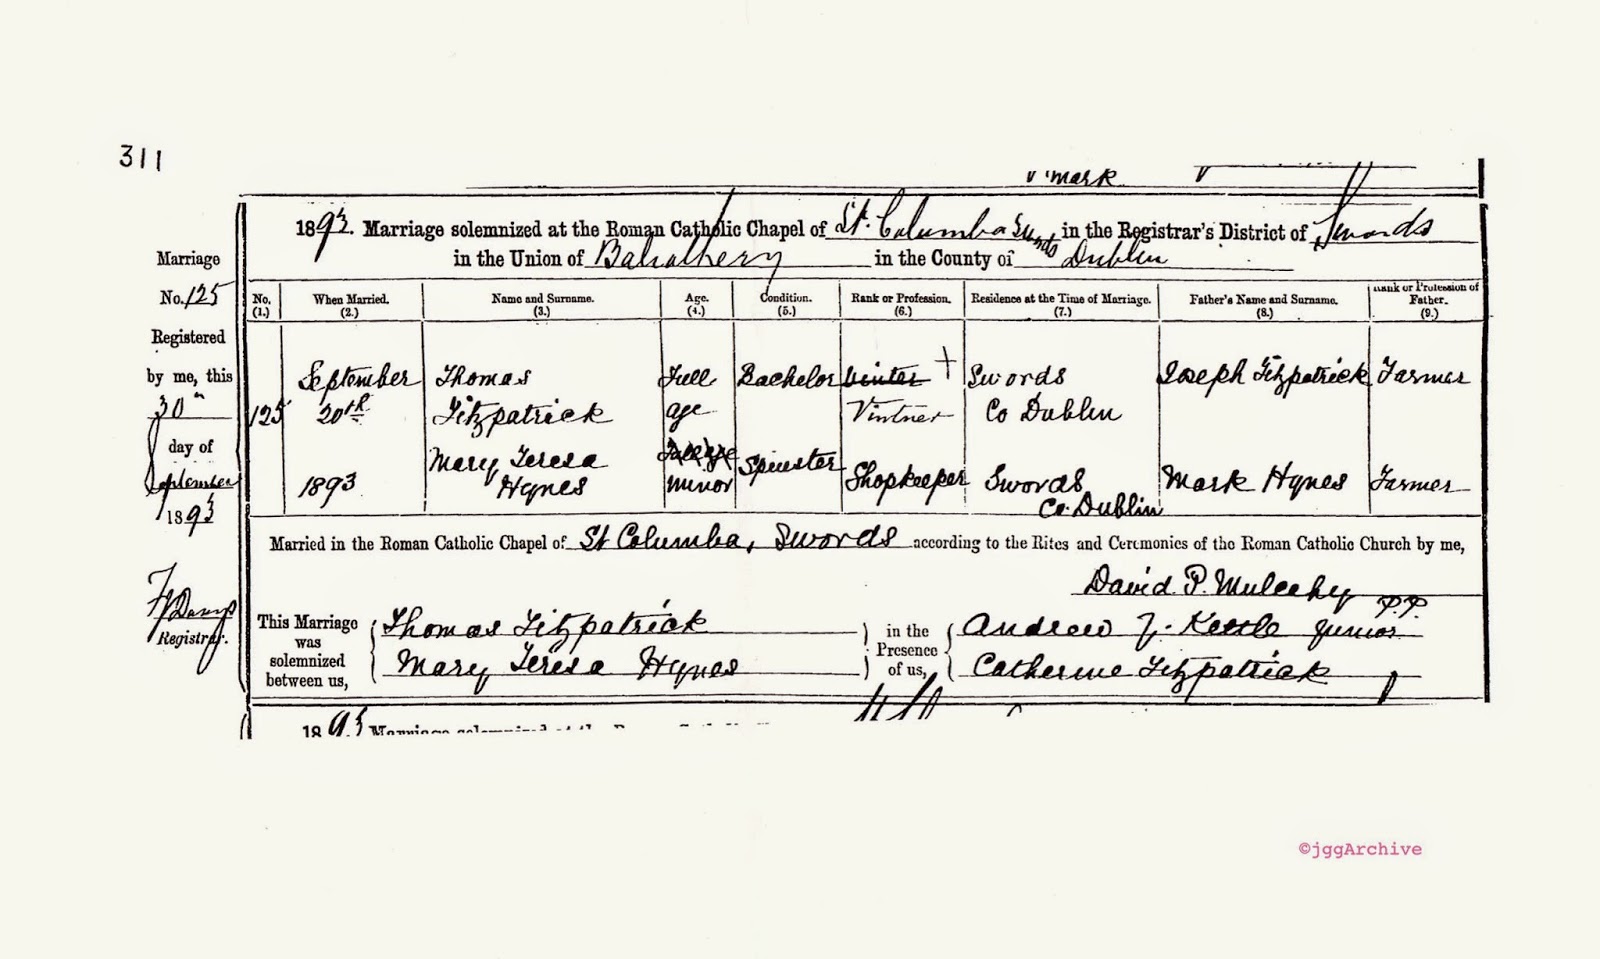 311
mark
1893. Marriage solemnized at the Roman Catholic Chapel of St. Columba Swords in the Registrar's District of Swords
in the Union of Balrothery in the County of Dublin
Marriage
No. 125
Registered
by me, this
30"
day of
September
1893
Registrar.
No. When Married. Name and Surname. Age. Condition. Rank or Profession. Residence at the Time of Marriage. Father's Name and Surname. Rank or Profession of Father.
(1.) (2.) (3.) (4.) (5.) (6.) (7.) (8.) (9.)
September Thomas Full Bachelor Vinter + Swords Joseph Fitzpatrick Farmer
125 20th Fitzpatrick age Vintner Co Dublin
Mary Teresa Full age Spinster
1893 Hynes minor Shopkeeper Swords Mark Hynes Farmer
Co. Dublin
Married in the Roman Catholic Chapel of St Columba, Swords according to the Rites and Ceremonies of the Roman Catholic Church by me,
David P. Mulcahy P.P.
This Marriage was solemnized between us,
Thomas Fitzpatrick
Mary Teresa Hynes
in the Presence of us,
Andrew J. Kettle Junior
Catherine Fitzpatrick
1893 Marriage solemnized at the
©jggArchive